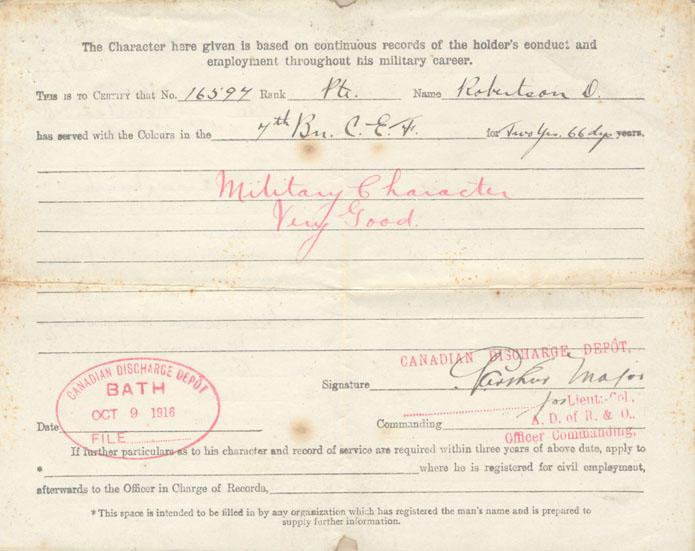 The Character here given is based on continuous records of the holder's conduct and
employment throughout his military career.
THIS IS TO CERTIFY that No. 16597 Rank Pte. Name Robertson D.
has served with the Colours in the 7th Bn. C.E.F. for Two Yrs. 66 dys years.
Military Character
Very Good.
CANADIAN DISCHARGE DEPÔT,
Signature Major
for Lieut.-Col.,
Commanding A. D. of R. & O.,
Officer Commanding,
CANADIAN DISCHARGE DEPÔT
BATH
OCT 9 1916
FILE
Date
If further particulars as to his character and record of service are required within three years of above date, apply to
* where he is registered for civil employment,
afterwards to the Officer in Charge of Records,
* This space is intended to be filled in by any organization which has registered the man's name and is prepared to
supply further information.